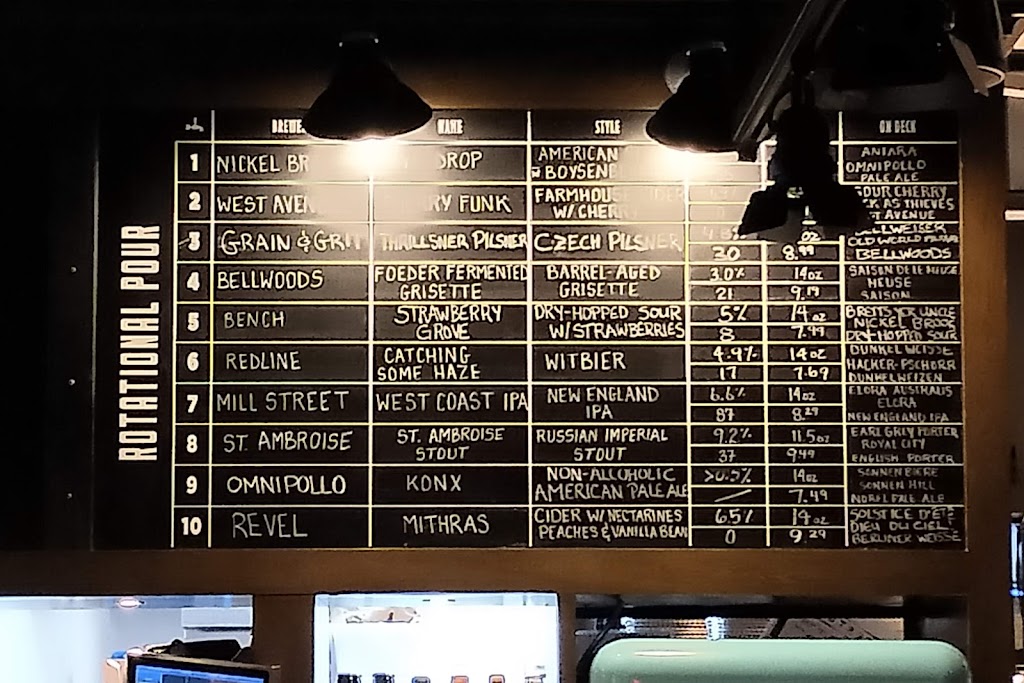 ROTATIONAL POUR
NAME STYLE ON DECK
1 NICKEL BR DROP AMERICAN ANIARA
W BOYSENB OMNIPOLLO
PALE ALE
2 WEST AVEN FUNK FARMHOUSE SOUR CHERRY
W/ CHERR AS THIEVES
AVENUE
3 GRAIN & GRIT THRILLSNER PILSNER CZECH PILSNER 4.8% OZ
OLD WORLD
30 8.99 BELLWOODS
4 BELLWOODS FOEDER FERMENTED BARREL-AGED 3.0% 14oz SAISON DE LE MEUSE
GRISETTE GRISETTE 21 9.19 MEUSE
SAISON
5 BENCH STRAWBERRY DRY-HOPPED SOUR 5% 14oz BRETTS YER UNCLE
GROVE W/STRAWBERRIES 8 7.99 NICKEL BROOK
DRY-HOPPED SOUR
6 REDLINE CATCHING WITBIER 4.9% 14oz DUNKEL WEISSE
SOME HAZE 17 7.69 HACKER-PSCHORR
DUNKELWEIZEN
7 MILL STREET WEST COAST IPA NEW ENGLAND 6.6% 14oz ELORA
IPA 87 8.29 ELORA
NEW ENGLAND IPA
8 ST. AMBROISE ST. AMBROISE RUSSIAN IMPERIAL 9.2% 11.5oz EARL GREY PORTER
STOUT STOUT 37 9.49 ROYAL CITY
ENGLISH PORTER
9 OMNIPOLLO KONX NON-ALCOHOLIC >0.5% 14oz SONNENBIERE
AMERICAN PALE ALE 7.49 SONNEN HILL
PALE ALE
10 REVEL MITHRAS CIDER W/ NECTARINES 6.5% 14oz SOLSTICE D'ÉTÉ
PEACHES & VANILLA BEAN 0 9.29 DIEU DU CIEL
BERLINER WEISSE